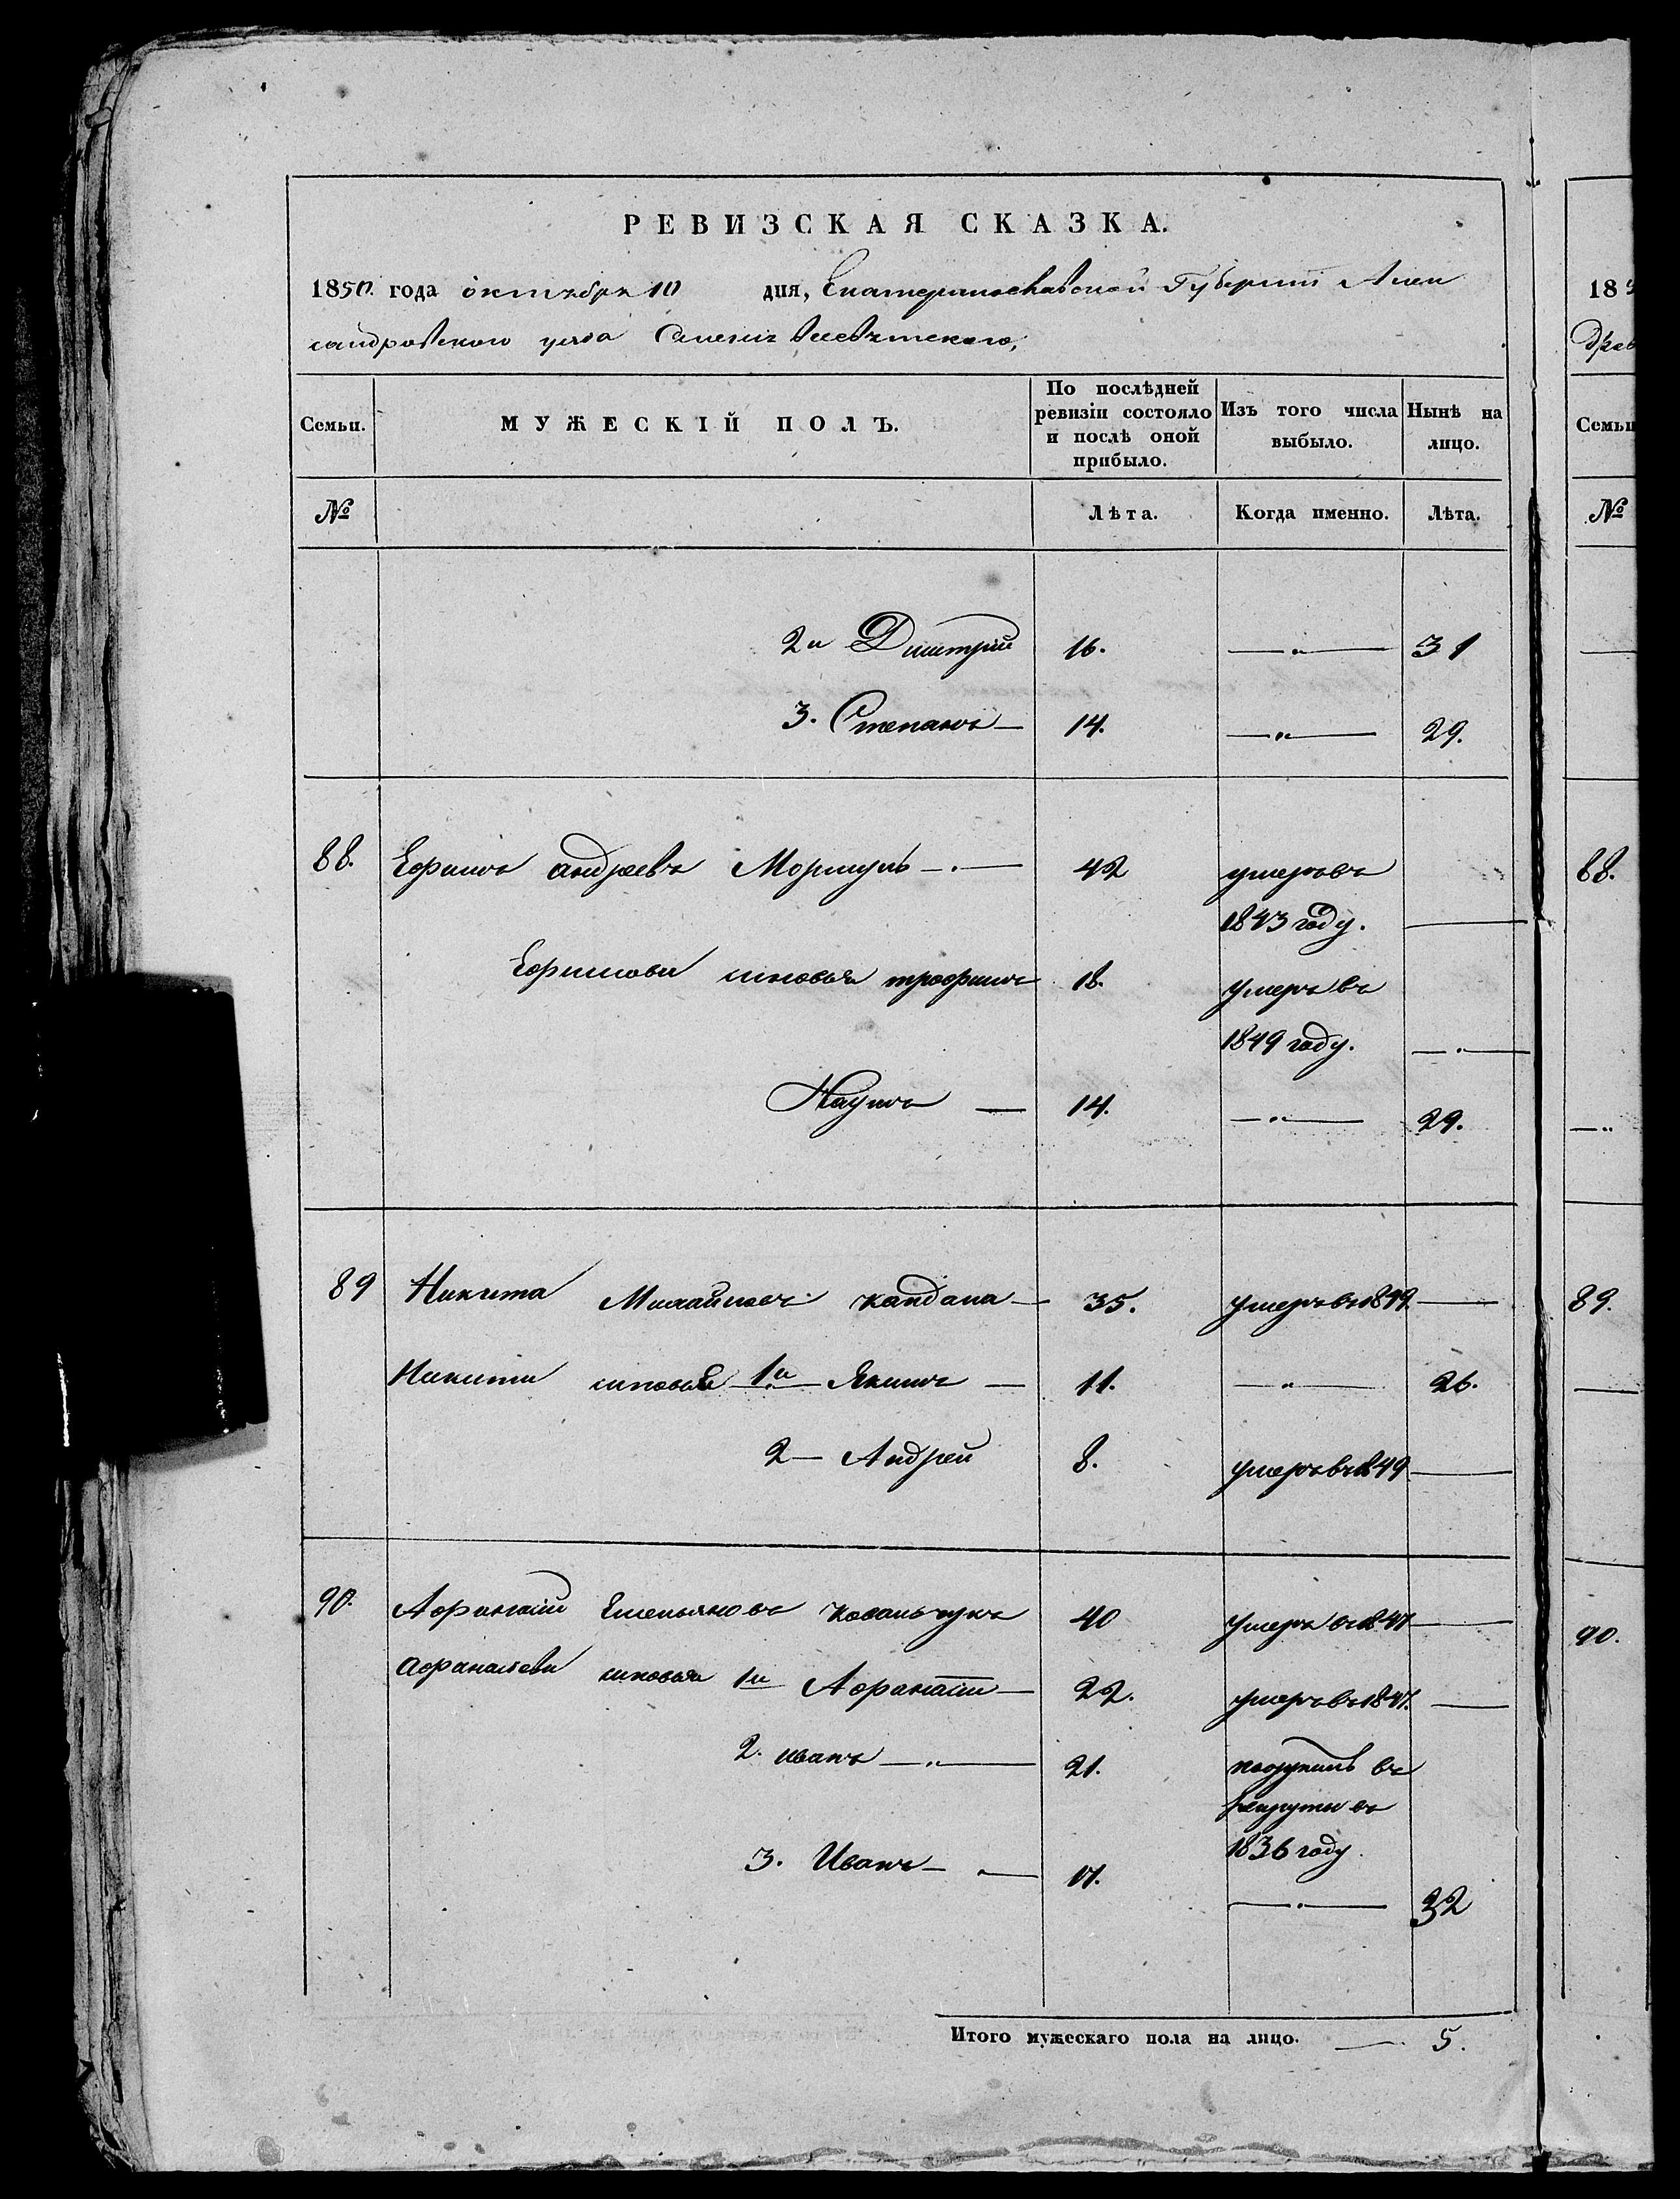 РЕВИЗСКАЯ СКАЗКА.
1850. года октября 10 дня, Екатеринославской Губернии Алек
сандровского уезда Селения
Семьи.
МУЖЕСКІЙ ПОЛЪ.
По послѣдней ревизіи состояло и послѣ оной прибыло.
Изъ того числа выбыло.
Нынѣ на лицо.
№ Лѣта. Когда именно. Лѣта.
2й Дмитрий 16. —„— 31
3. Степанъ — 14. —„— 29.
88. Ефимъ андреевъ — . — 42 умеръ въ
1843 году. —
Ефимовы сыновья трофимъ 18. умеръ въ
1849 году. — . —
Наумъ — 14. —„— 29.
89 Никита — 35. умеръ въ 1849. —
Никиты сыновья 1й — Якимъ — 11. —„— 26.
2 — Андрей 8. умеръ въ 1849 —
90. Афанасий Емельяновъ ковальчукъ 40 умеръ въ 1847 —
Афанасьевы сыновья 1й Афанасии — 22. умеръ въ 1847. —
2. иванъ —„— 21. поступилъ въ
рекруты въ
1836 году.
3. Иванъ — 17. — . — 32
Итого мужескаго пола на лицо. — 5.
18
Семьи
№
88.
89.
90.